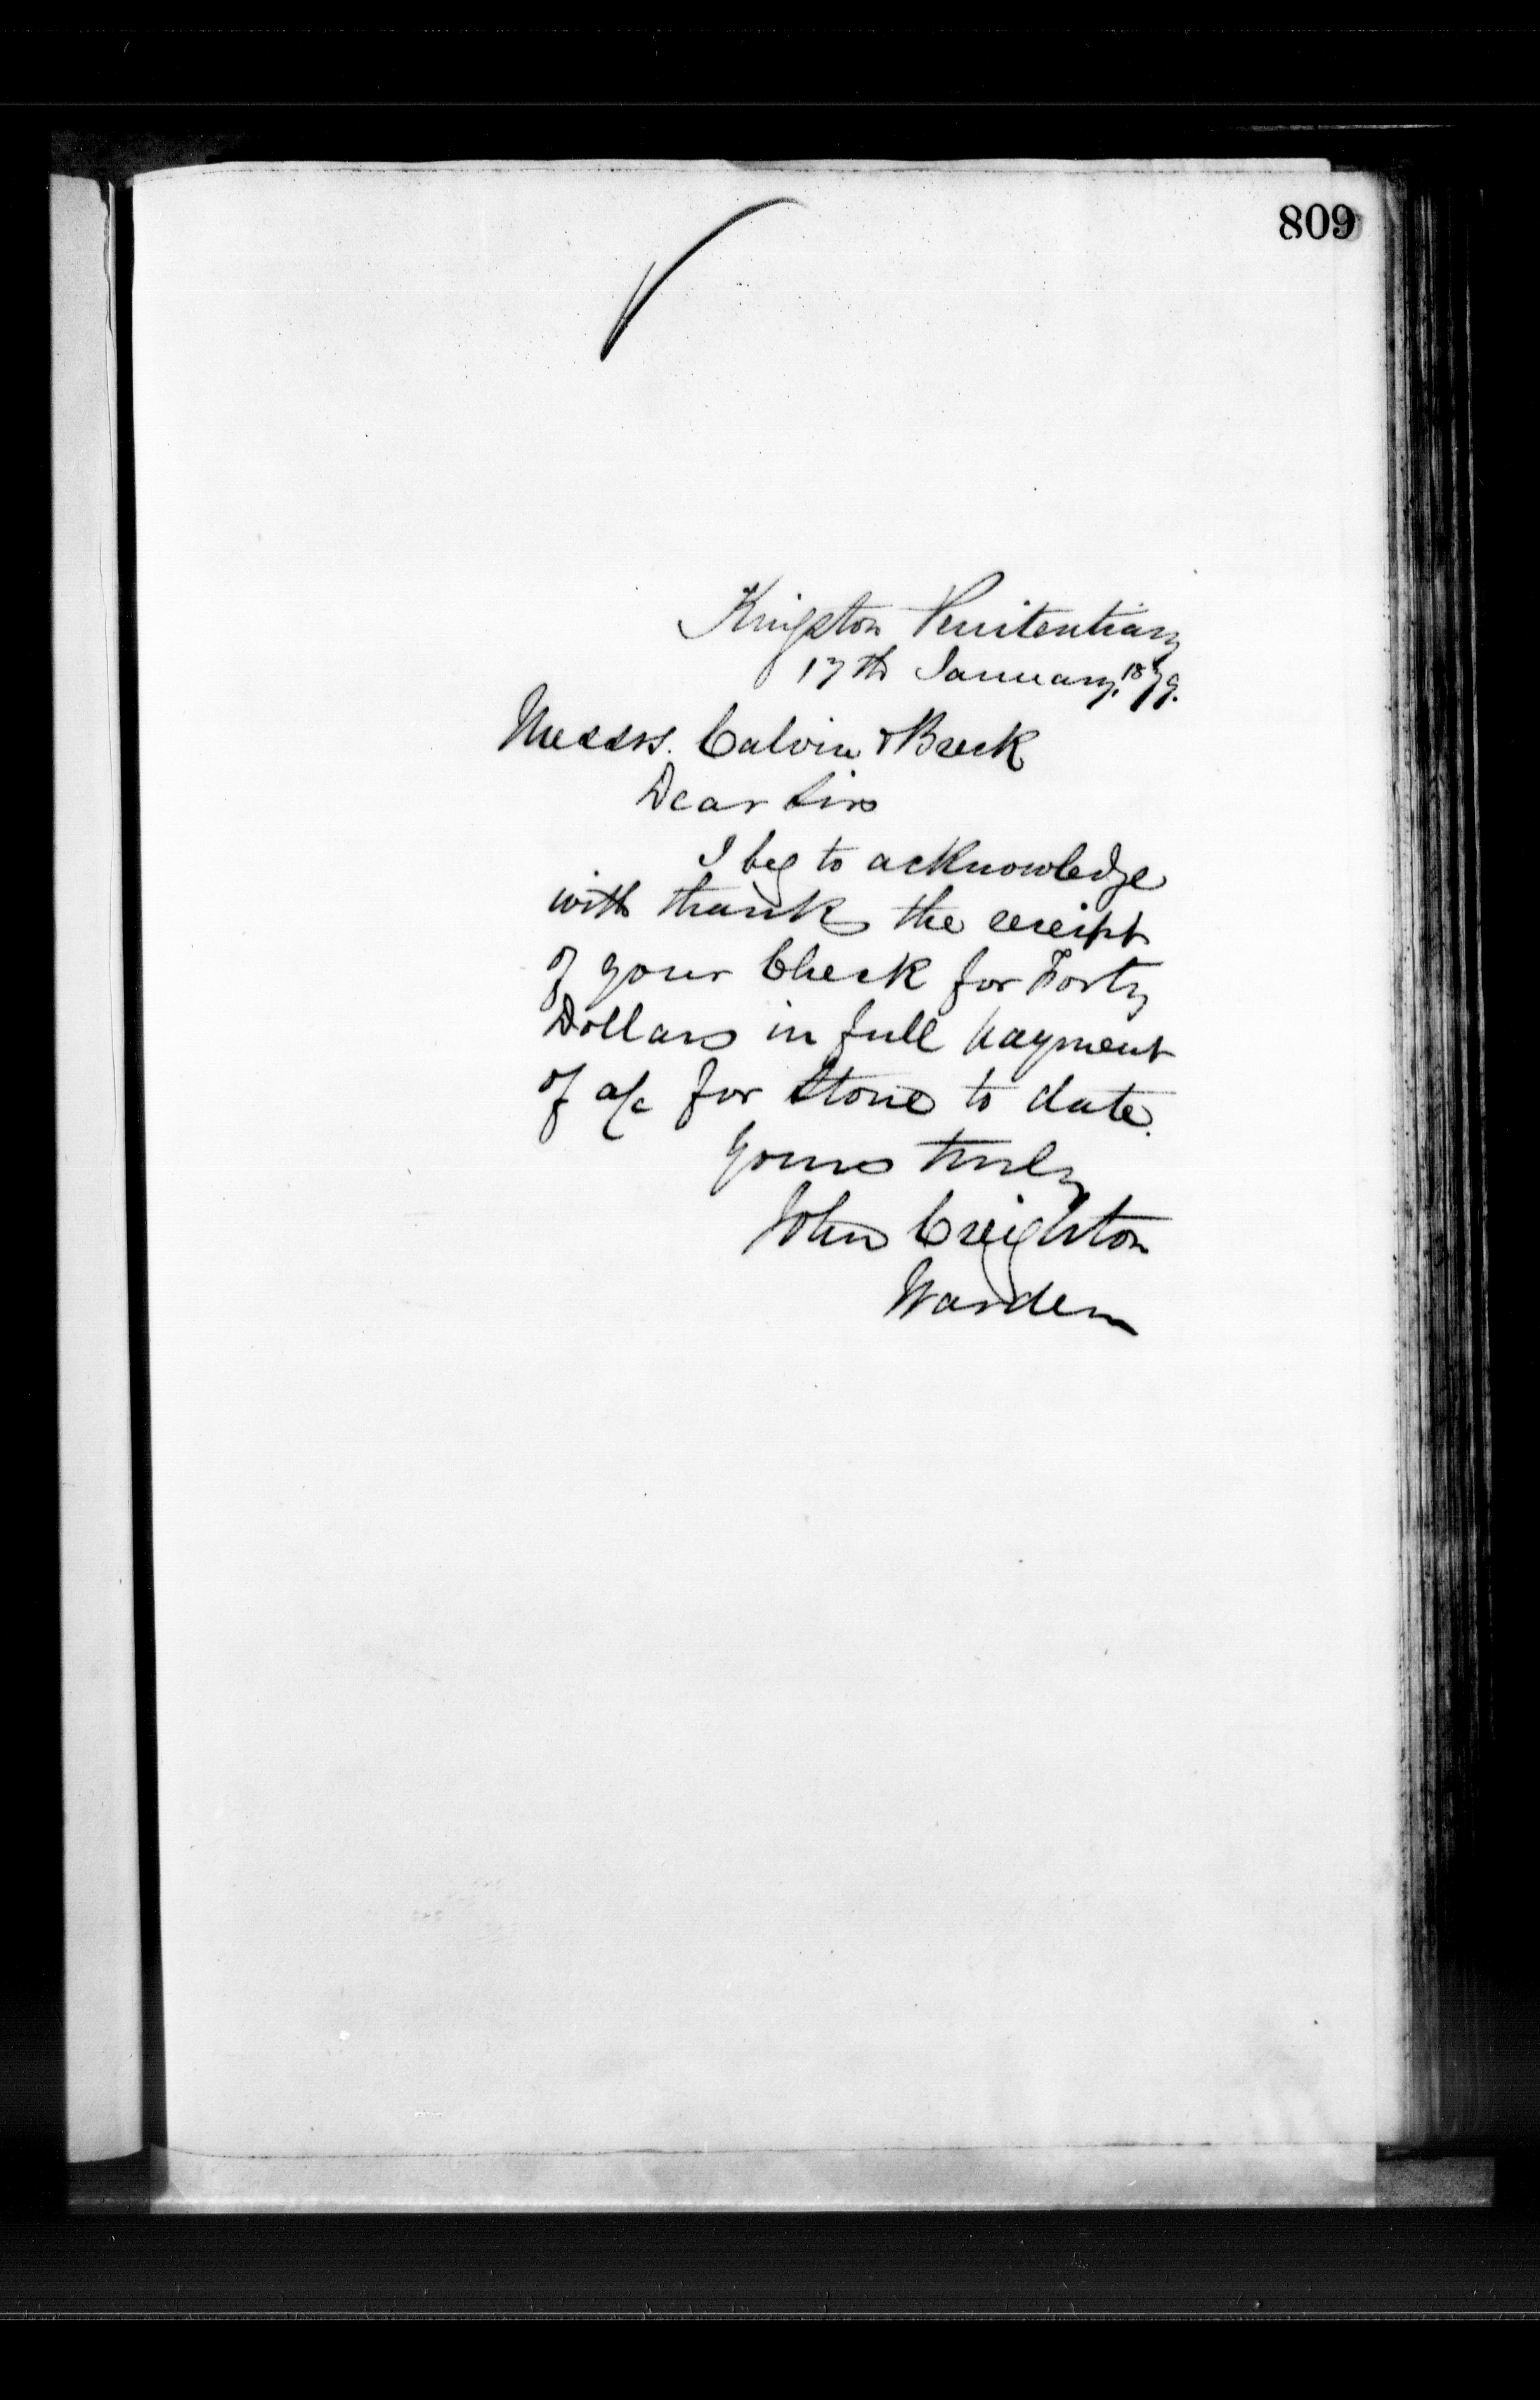 809
Kingston Penitentiary
17th January, 1879.
Messrs. Calvin & Breck
Dear Sirs
I beg to acknowledge
with thanks the receipt
of your Check for Forty
Dollars in full payment
of a/c for Stone to date.
Yours truly
John Creighton
Warden